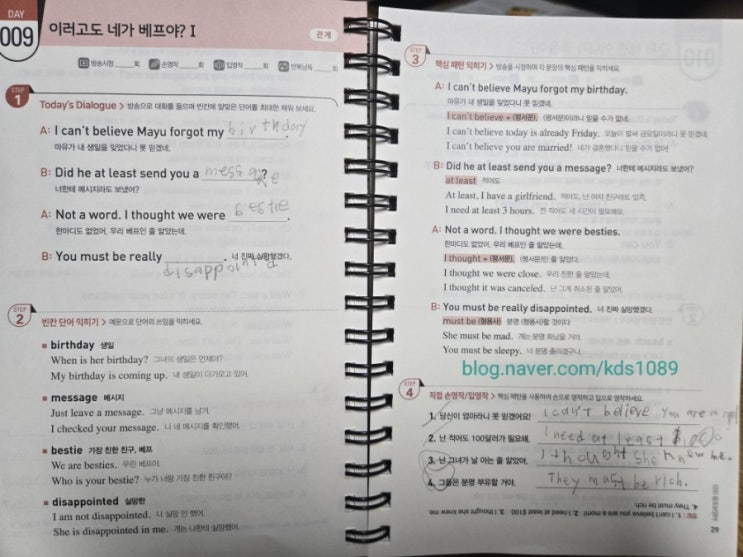 DAY
009
이러고도 네가 베프야? I
관계
방송시청 ____회 손영작 ____회 입영작 ____회 반복낭독 ____회
STEP 1
Today's Dialogue > 방송으로 대화를 들으며 빈칸에 알맞은 단어를 최대한 채워 보세요.
A: I can't believe Mayu forgot my birthday.
마유가 내 생일을 잊었다니 못 믿겠네.
B: Did he at least send you a message?
너한테 메시지라도 보냈어?
A: Not a word. I thought we were bestie.
한마디도 없었어. 우리 베프인 줄 알았는데.
B: You must be really disappointed. 너 진짜 실망했겠다.
STEP 2
빈칸 단어 익히기 > 예문으로 단어의 쓰임을 익히세요.
■ birthday 생일
When is her birthday? 그녀의 생일은 언제야?
My birthday is coming up. 내 생일이 다가오고 있어.
■ message 메시지
Just leave a message. 그냥 메시지를 남겨.
I checked your message. 나 네 메시지를 확인했어.
■ bestie 가장 친한 친구, 베프
We are besties. 우린 베프야.
Who is your bestie? 누가 너랑 가장 친한 친구야?
■ disappointed 실망한
I am not disappointed. 나 실망 안 했어.
She is disappointed in me. 걔는 나한테 실망했어.
STEP 3
핵심 패턴 익히기 > 방송을 시청하며 각 문장의 핵심 패턴을 익히세요.
A: I can't believe Mayu forgot my birthday.
마유가 내 생일을 잊었다니 못 믿겠네.
I can't believe + (평서문). (평서문)이라니 믿을 수가 없네.
I can't believe today is already Friday. 오늘이 벌써 금요일이라니 못 믿겠네.
I can't believe you are married! 네가 결혼했다니 믿을 수가 없어!
B: Did he at least send you a message? 너한테 메시지라도 보냈어?
at least 적어도
At least, I have a girlfriend. 적어도, 난 여자 친구라도 있지.
I need at least 3 hours. 전 적어도 세 시간이 필요해요.
A: Not a word. I thought we were besties.
한마디도 없었어. 우리 베프인 줄 알았는데.
I thought + (평서문). (평서문)인 줄 알았다.
I thought we were close. 우리 친한 줄 알았는데.
I thought it was canceled. 난 그게 취소된 줄 알았어.
B: You must be really disappointed. 너 진짜 실망했겠다.
must be (형용사) 분명 (형용사)할 것이다
She must be mad. 걔는 분명 화났을 거야.
You must be sleepy. 너 분명 졸리겠구나.
blog.naver.com/kds1089
STEP 4
직접 손영작/입영작 > 핵심 패턴을 사용하여 손으로 영작하고 입으로 영작하세요.
1. 당신이 엄마라니 못 믿겠어요! I can't believe you are a
2. 난 적어도 100달러가 필요해. I need at least $100
3. 난 그녀가 날 아는 줄 알았어. I thought she knew me.
4. 그들은 분명 부유할 거야. They must be rich.
정답 | 1. I can't believe you are a mom! 2. I need at least $100. 3. I thought she knew me.
4. They must be rich.
29